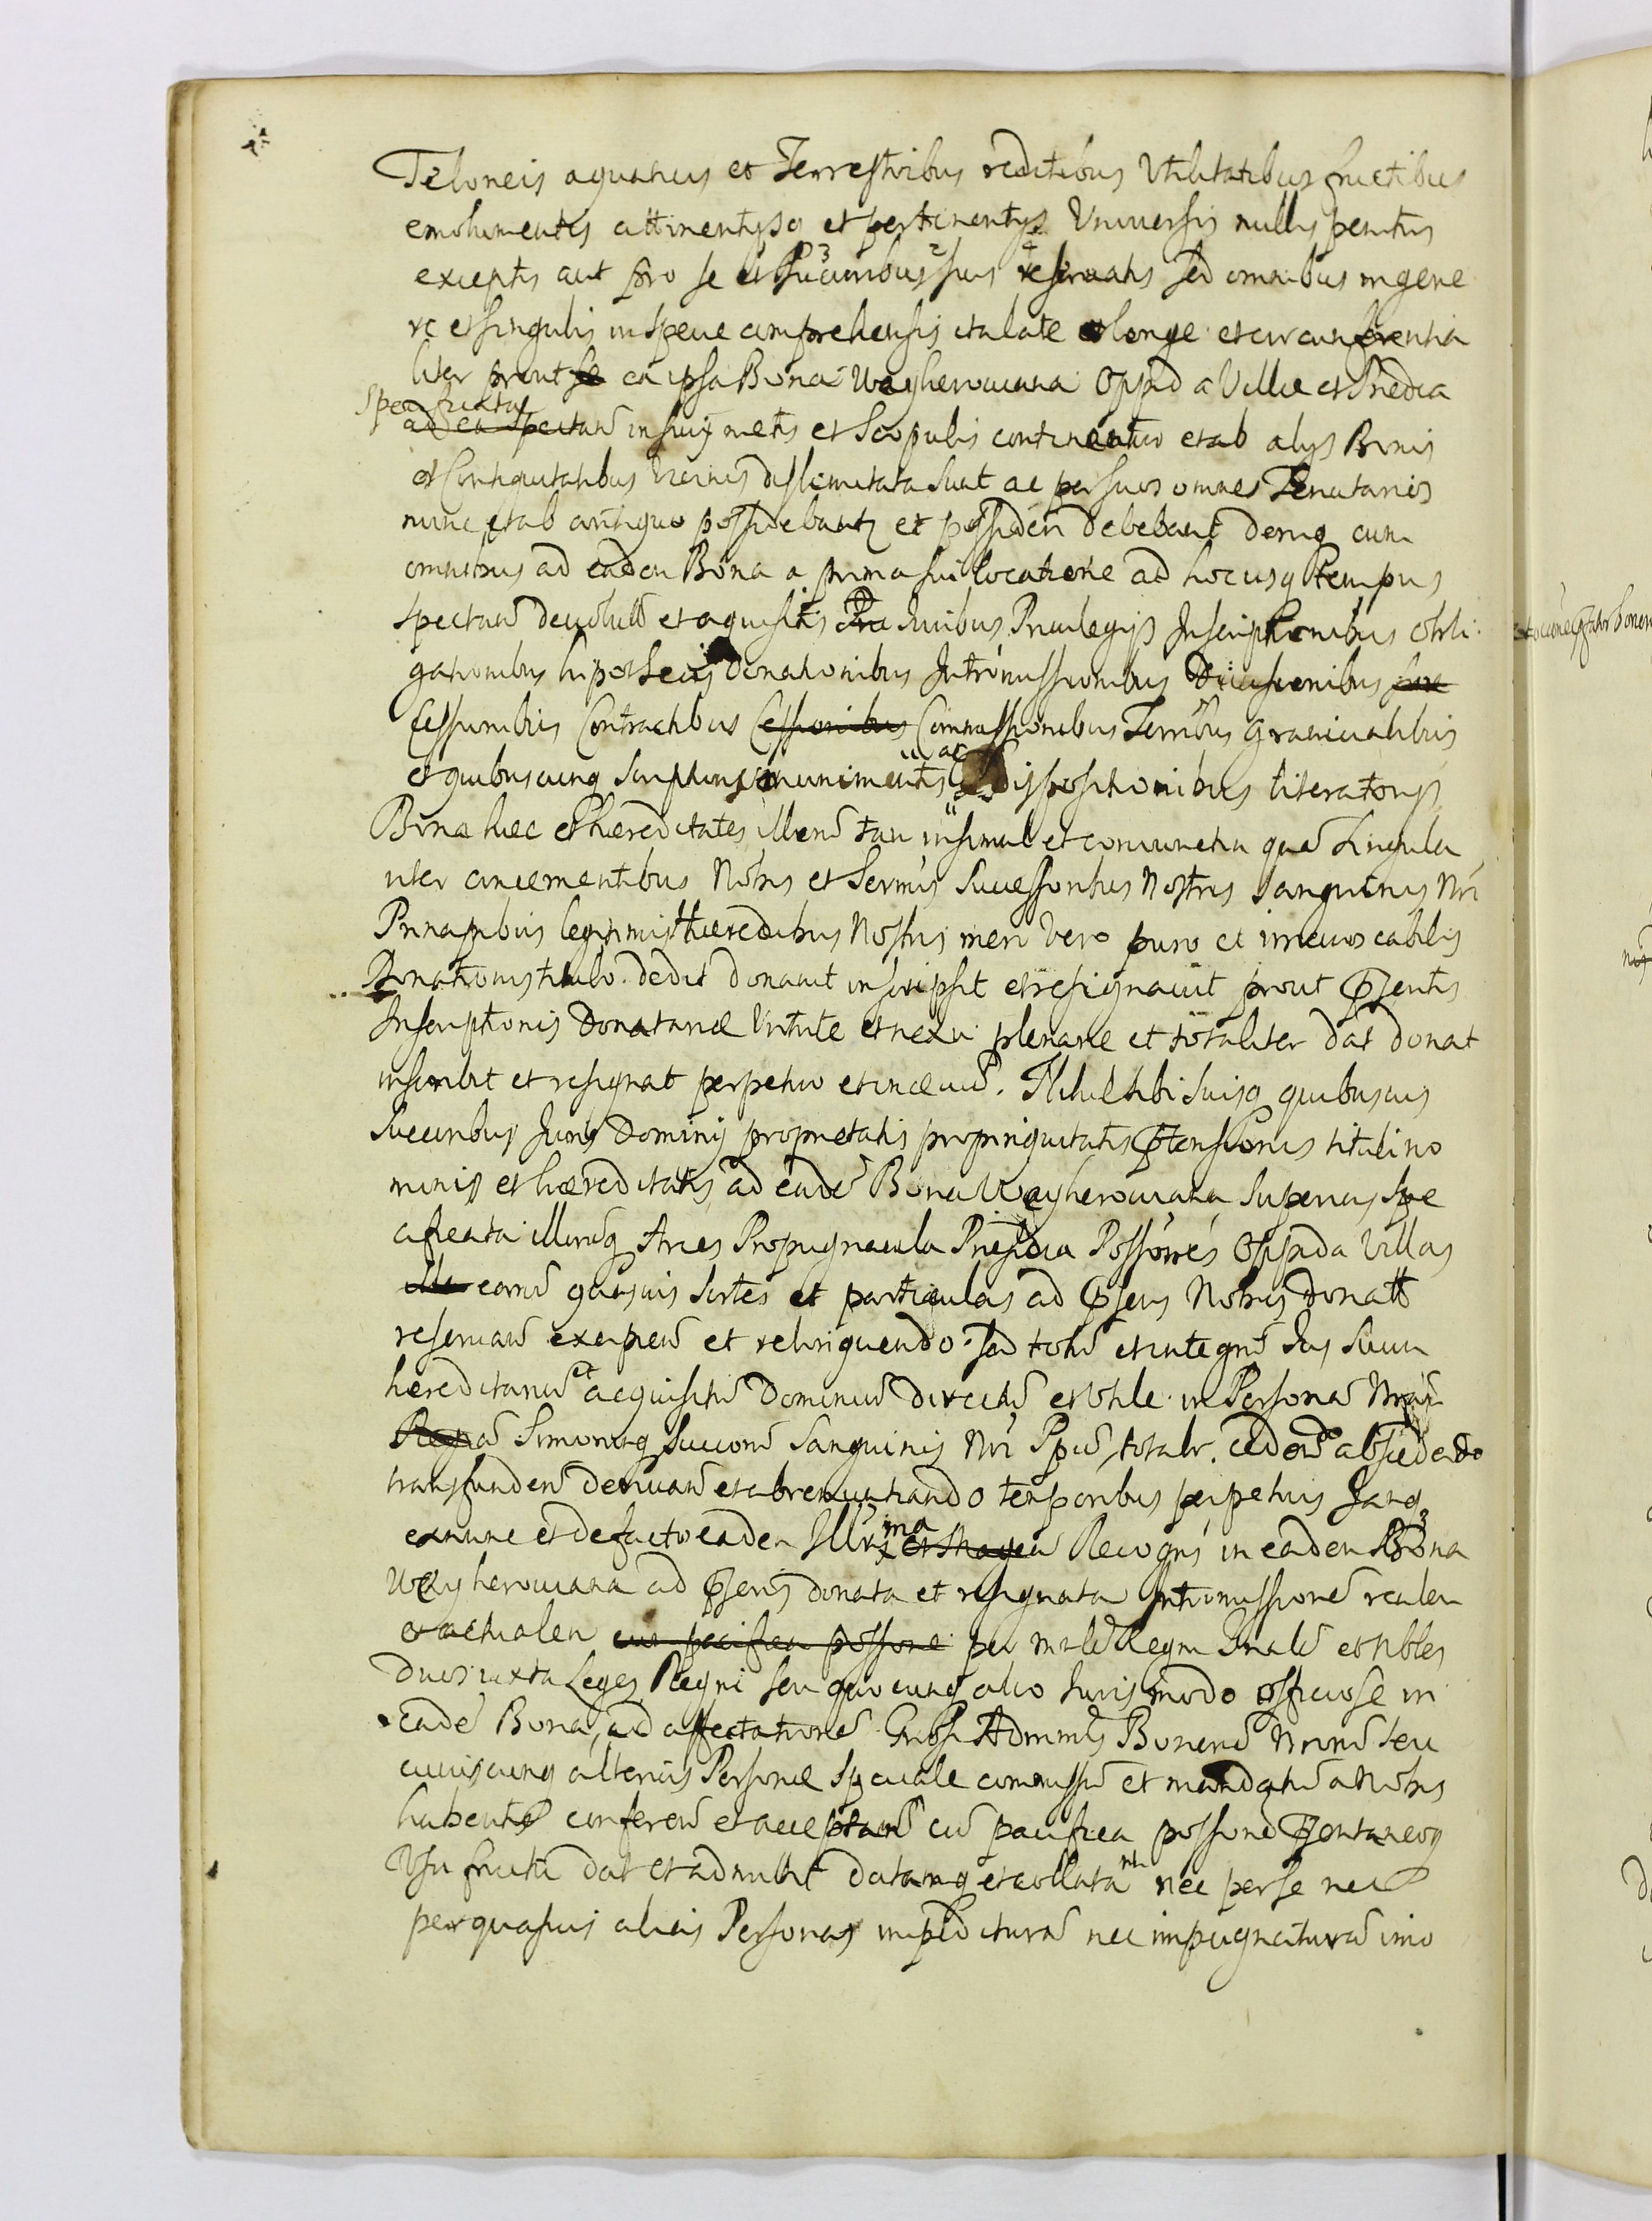 Teloneis aquaticis et Terrestribus reditibus Vtilitatibus fructibus
emolumentis attinentijsq et pertinentijs Vniuersis nullis penitus
exceptis aut pro se et Succribus suis reseruatis sed omnibus in gene
re et singulis in specie comprehensis ita late et longe et circumferentia
liter prout se ea ipsa Bona Wegherouiana Oppida Villae et Praedia
Specificata
ad ea spectan in suis metis et Scopulis continentur et ab alijs Bonis
et Contiguitatibus Vicinis dislimitata sunt ac per suos omnes Tenutarios
nunc et ab antiquo possidebantur et possideri debebant deniq cum
omnibus ad eadem Bona a prima sui locatione ad hoc usq tempus
spectan deuolut et aquisitis Pra Juribus Priuilegijs Inscriptionibus Obli
gationibus hipotecis Donationibus Intromissionibus Diuisionibus
Cessionibus Contractibus Cessionibus Commissionibus Terribus graniciatibus
et quibuscunq scripturis munimentis ac dispositionibus literatorijs
Bona haec et haereditates illarum tam insimul et coniunctim quam singula
riter concernentibus Nobis et Sermis Successoribus Nostris Sanguinis Nri
Principibus legitimis Haeredibus Nostris meri Vero puro et irreuocabilis
Donationis titulo dedit donauit inscripsit et resignauit prout psentis
Inscriptionis Donatariae Virtute et nexu plenarie et totaliter dat donat
inscribit et resignat perpetuo et in aeuum. Nihil sibi suisq quibusuis
Succribus Juris Dominij proprietatis propinquitatis ptensionis tituli no
minis et haereditatis ad eade Bona Wegherouiana superius spe
cificata illarumq Arces Propugnacula Praesidia Possones Oppida Villas
earum quasuis sortes et particulas ad psens Nobis donatt
reseruan excipien et relinquendo sed totu et integru Jus suum
haereditariu et acquisitu Dominiu directu et Vtile in Persona Nram
Sermorumq Succoru Sanguinis Nri Ppum totalr. cedend abscedendo
transfunden deriuan et abrenuntiando temporibus perpetuis Jamq
ex nunc et de facto eadem Illris ma et Recogns in eadem Bona
Wegherouiana ad psens donata et resignata Intromissione realem
et actualem cum pacifica possone per mrlem Regni Gnale et Nobles
duos iuxta Leges Regni seu quocunq alio Juris modo officiose in
eade Bona, ad affectatione Gnosi Admnis Bonoru Nroru seu
cuiuscunq alterius Personae speciale commissu et mandatu a Nobis
habentis conferen et acceptan cu pacifica possone psentaneoq
Vsu fructu dat et admittit datamq et collata nec per se nec
per quasuis alias Personas impeditura nec impugnatura imo